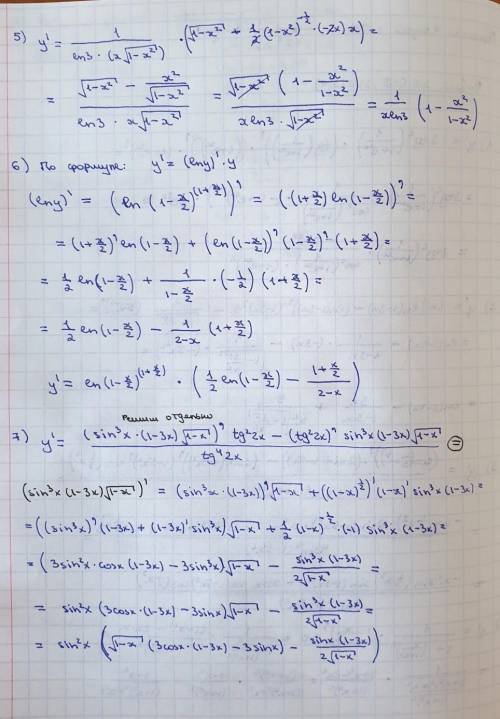 5) y' = 1/(ln3·(x√(1-x²))) · (√(1-x²) + 1/2 (1-x²)^(-1/2)·(-2x)x) =
= (√(1-x²) - x²/√(1-x²))/(ln3·x√(1-x²)) = (√(1-x²) (1 - x²/(1-x²)))/(xln3·√(1-x²)) = 1/(xln3) (1 - x²/(1-x²))
6) По формуле: y' = (lny)'·y
(lny)' = (ln (1-x/2)^(1+x/2))' = ((1+x/2) ln(1-x/2))' =
= (1+x/2)' ln(1-x/2) + (ln(1-x/2))' (1-x/2)' (1+x/2) =
= 1/2 ln(1-x/2) + 1/(1-x/2) ·(-1/2) (1+x/2) =
= 1/2 ln(1-x/2) - 1/(2-x) (1+x/2)
y' = ln(1-x/2)^(1+x/2) · (1/2 ln(1-x/2) - (1+x/2)/(2-x))
решим отдельно
7) y' = ((sin³x·(1-3x)√(1-x))' tg²2x - (tg²2x)' sin³x(1-3x)√(1-x))/(tg⁴2x) =
(sin³x(1-3x)√(1-x))' = (sin³x·(1-3x))'√(1-x) + ((1-x)^(1/2))'(1-x)' sin³x(1-3x) =
= ((sin³x)'(1-3x) + (1-3x)' sin³x)√(1-x) + 1/2 (1-x)^(-1/2)·(-1) sin³x(1-3x) =
= (3sin²x·cosx(1-3x) - 3sin³x)√(1-x) - (sin³x(1-3x))/(2√(1-x)) =
= sin²x(3cosx·(1-3x) - 3sinx)√(1-x) - (sin³x(1-3x))/(2√(1-x)) =
= sin²x (√(1-x) (3cosx·(1-3x) - 3sinx) - (sinx(1-3x))/(2√(1-x)))